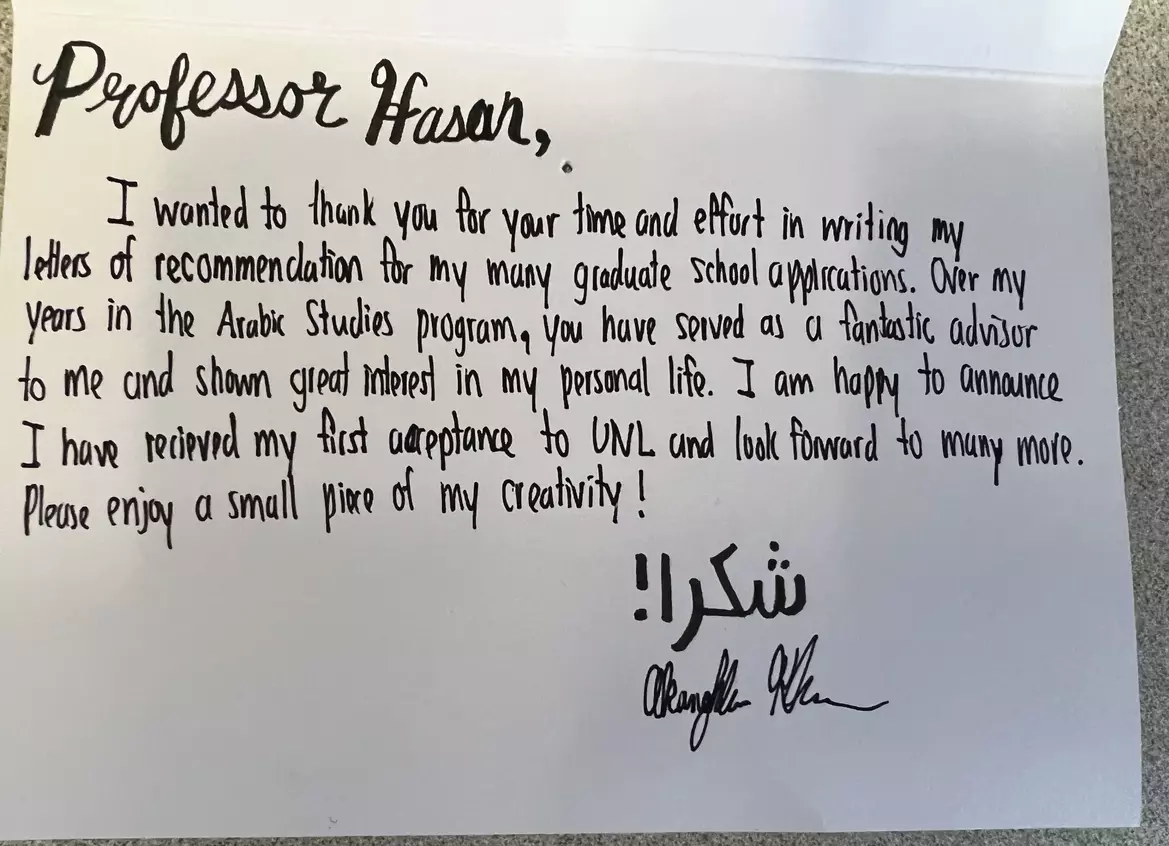 Professor Hasan,
I wanted to thank you for your time and effort in writing my
letters of recommendation for my many graduate school applications. Over my
years in the Arabic Studies program, you have served as a fantastic advisor
to me and shown great interest in my personal life. I am happy to announce
I have recieved my first acceptance to UNL and look forward to many more.
Please enjoy a small piece of my creativity!
شكرا!